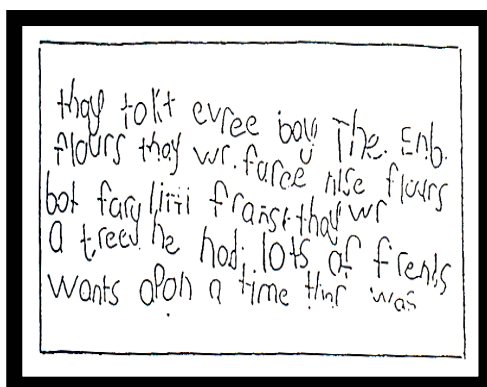 thay tokt evree bay The. Enb.
flours thay wr. faree nise flours
bot fary litil franst thay wr
a tree he had lots of frends
wants apon a time thir was